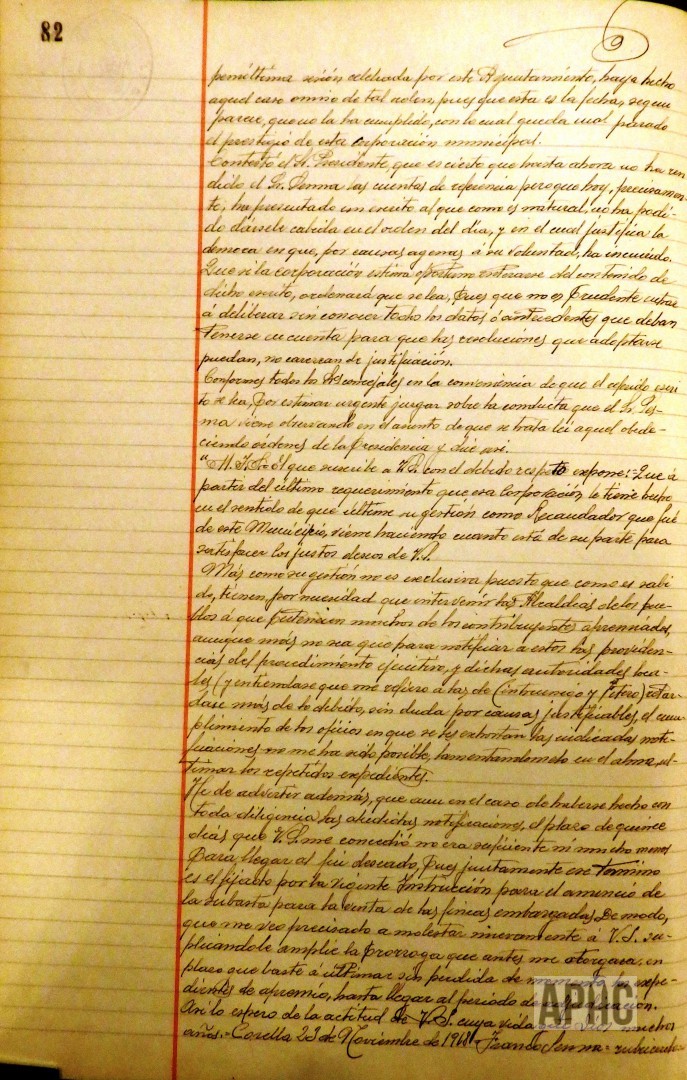 82
penúltima sesión celebrada por este Ayuntamiento, haya hecho
aquel caso omiso de tal orden, pues que esta es la fecha, según
parece, que no la ha cumplido, con lo cual queda mal parado
el prestigio de esta corporación municipal.
Contestó el Sr. Presidente, que es cierto que hasta ahora no ha ren
dido el Sr. Senma las cuentas de referencia pero que hoy, precisamen-
te, ha presentado un escrito al que como es natural, no ha podi-
do dársele cabida en el orden del día, y en el cual justifica la
demora en que, por causas agenas á su voluntad, ha incurrido.
Que si la corporación estima oportuno enterarse del contenido de
dicho escrito, ordenará que se lea, pues que no es prudente entrar
á deliberar sin conocer todos los datos ó antecedentes que deban
tenerse en cuenta para que las resoluciones que adoptarse
puedan, no carezcan de justificación.
Conformes todos los Sres concejales en la conveniencia de que el referido escri
to se lea, por estimar urgente juzgar sobre la conducta que el Sr. Sen-
ma viene observando en el asunto de que se trata leí aquel obede-
ciendo órdenes de la Presidencia y dice así.
"M. I. S. = El que suscribe a V.S. con el debido respeto expone: = Que á
partir del último requerimiento que esa Corporación le tiene hecho
en el sentido de que ultime su gestión como Recaudador que fué
de este Municipio, viene haciendo cuanto está de su parte para
satisfacer los justos deseos de V.S.
Más como su gestión no es exclusiva puesto que como es sabi
do, tienen, por necesidad que intervenir las Alcaldías de los pue-
blos á que pertenecen muchos de los contribuyentes apremiados,
aunque más no sea que para notificar a estos las providen-
cias del procedimiento ejecutivo, y dichas autoridades loca-
les (y entiendase que me refiero á las de Cintruenigo y Fitero) retar-
dan más de lo debido, sin duda por causas justificables, el cum-
plimiento de los oficios en que se les exhortan las indicadas noti-
ficaciones no me ha sido posible, lamentándomelo en el alma, ul-
timar los repetidos expedientes.
He de advertir además, que aun en el caso de haberse hecho con
toda diligencia las aludidas notificaciones, el plazo de quince
dias que V.S. me concedió no era suficiente ni mucho menos
para llegar al fin deseado, pues justamente ese termino
es el fijado por la vigente Instrucción para el anuncio de
la subasta para la venta de las fincas embargadas. De modo,
que me veo precisado a molestar nuevamente á V.S. su-
plicándole amplíe la prorroga que antes me otorgara, en
plazo que baste á ultimar sin perdida de momento los expe-
dientes de apremio, hasta llegar al periodo de adjudicacion.
Así lo espero de la actitud de V.S. cuya vida muchos
años. = Corella 23 de Noviembre de 1918 = Senma = rubricado
APHC